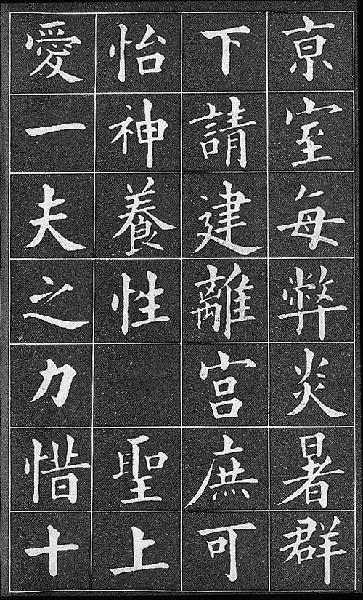 京室每弊炎暑群
下請建離宮庶可
怡神養性 聖上
愛一夫之力惜十